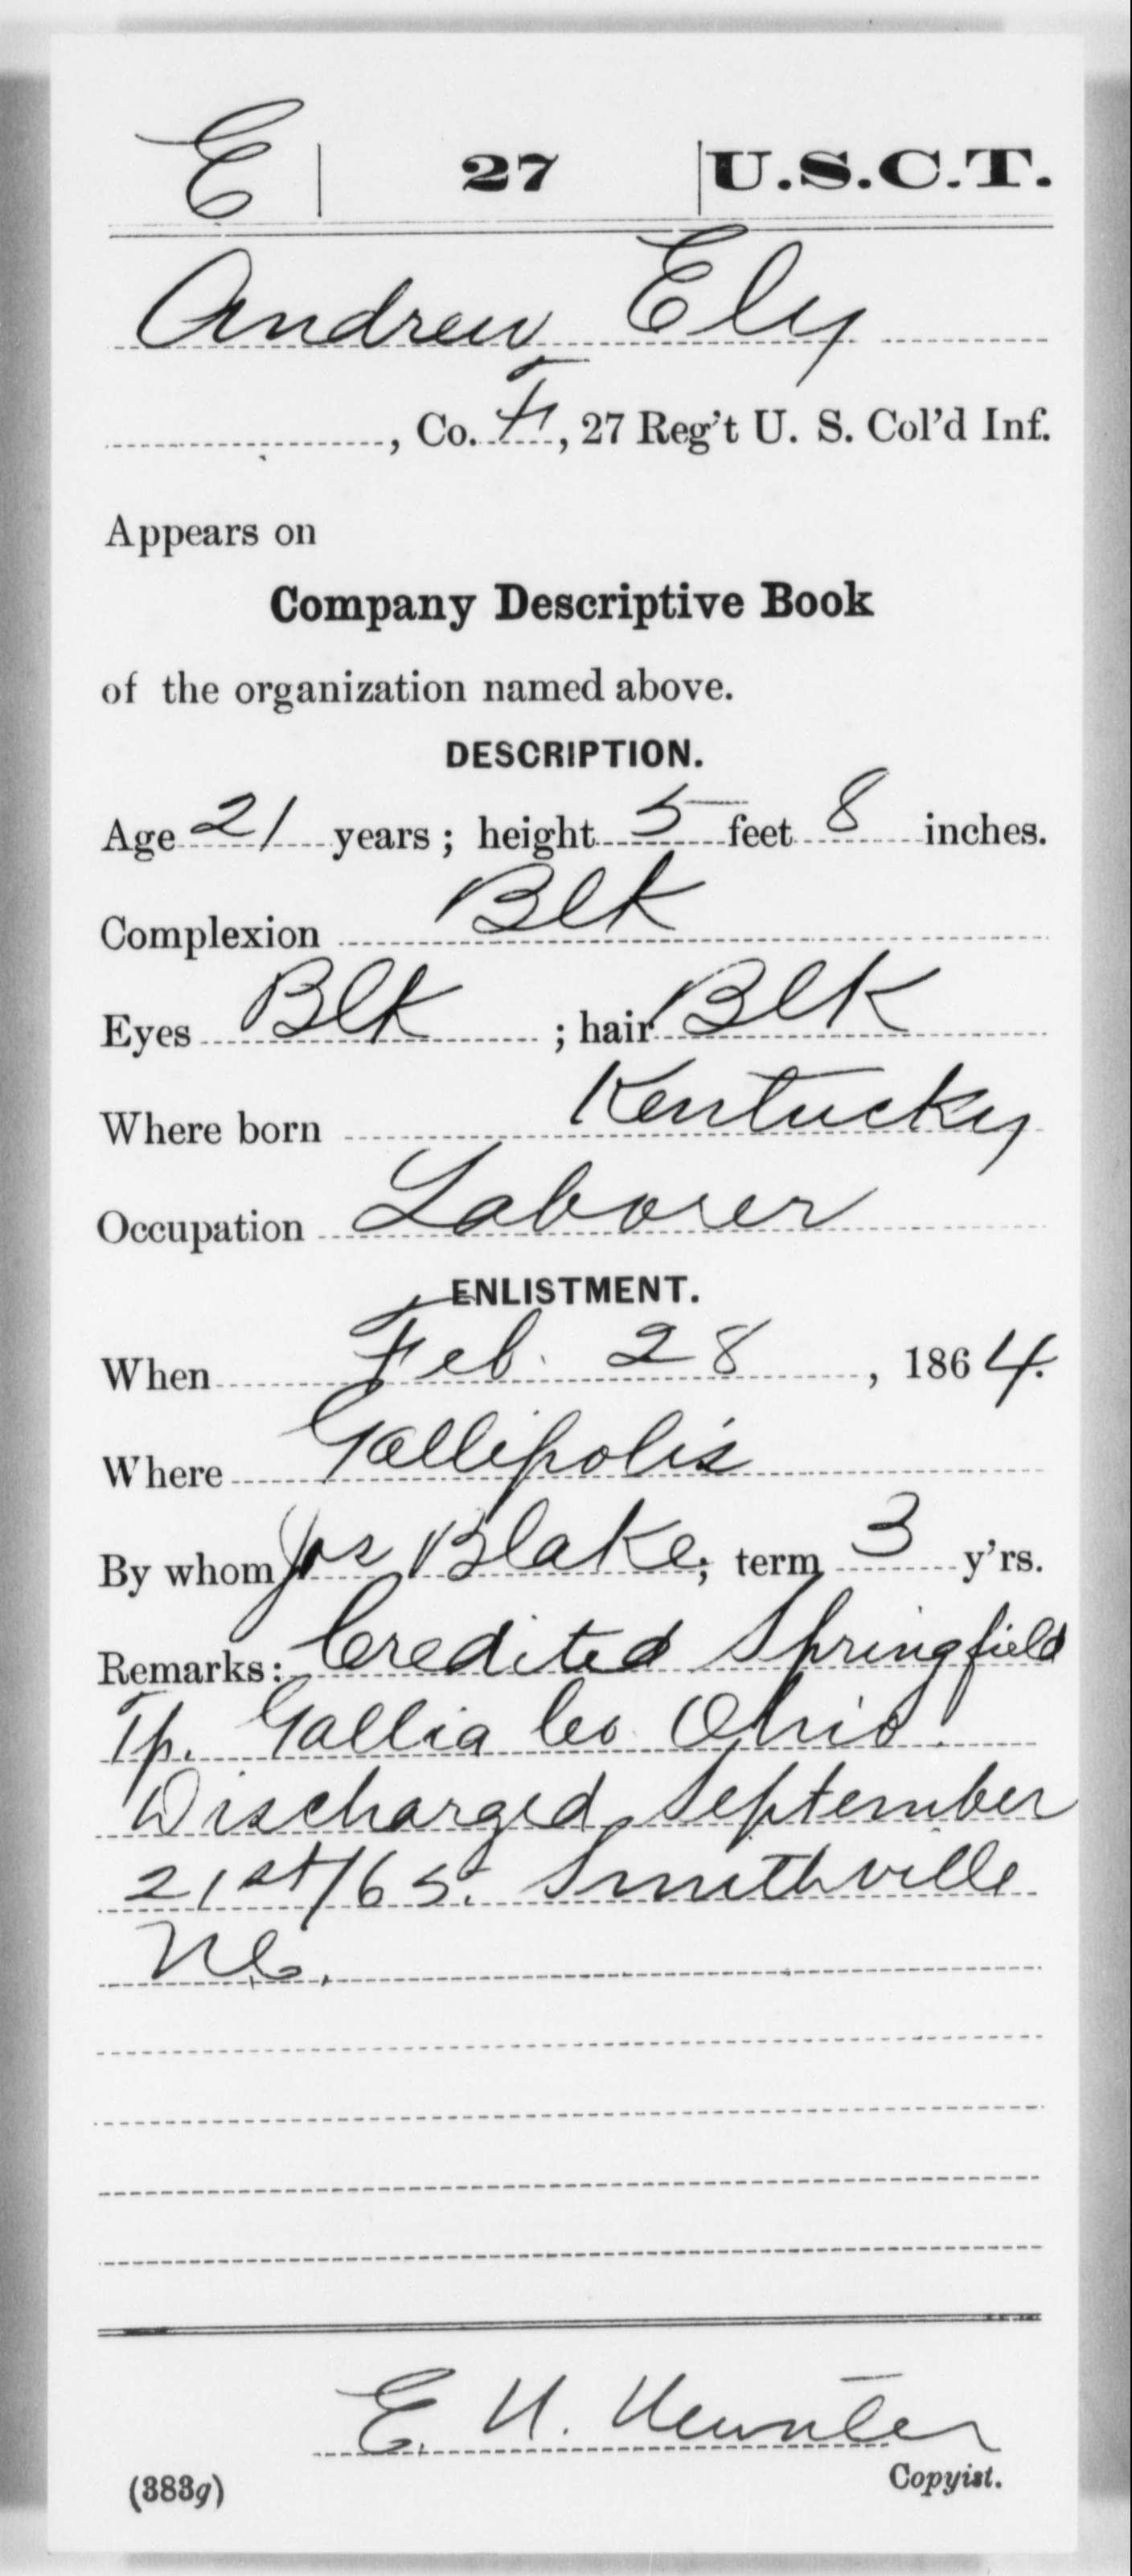 E 27 U.S.C.T.
Andrew Ely
, Co. F, 27 Reg't U. S. Col'd Inf.
Appears on
Company Descriptive Book
of the organization named above.
DESCRIPTION.
Age 21 years; height 5 feet 8 inches.
Complexion Blk
Eyes Blk ; hair Blk
Where born Kentucky
Occupation Laborer
ENLISTMENT.
When Feb. 28, 1864.
Where Gallipolis
By whom Jos Blake; term 3 y'rs.
Remarks: Credited Springfield
Tp. Gallia Co. Ohio.
Discharged September
21st/65. Smithville
N.C.
E.
Copyist.
(383g)